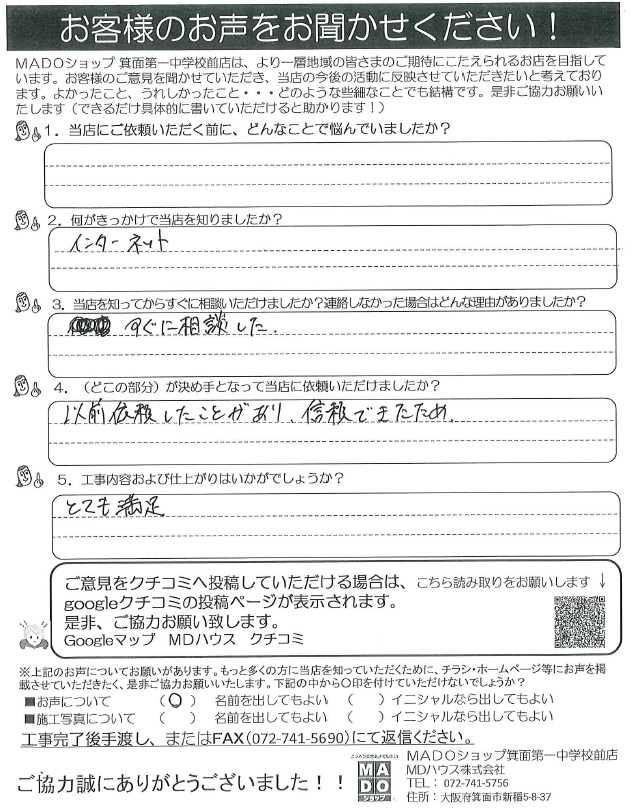 お客様のお声をお聞かせください！
MADOショップ 箕面第一中学校前店は、より一層地域の皆さまのご期待にこたえられるお店を目指して
います。お客様のご意見を聞かせていただき、当店の今後の活動に反映させていただきたいと考えており
ます。よかったこと、うれしかったこと・・・どのような些細なことでも結構です。是非ご協力お願いい
たします（できるだけ具体的に書いていただけると助かります！）
1．当店にご依頼いただく前に、どんなことで悩んでいましたか？
2．何がきっかけで当店を知りましたか？
インターネット
3．当店を知ってからすぐに相談いただけましたか？連絡しなかった場合はどんな理由がありましたか？
すぐに相談した．
4．（どこの部分）が決め手となって当店に依頼いただけましたか？
以前依頼したことがあり、信頼できたため．
5．工事内容および仕上がりはいかがでしょうか？
とても満足
ご意見をクチコミへ投稿していただける場合は、こちら読み取りをお願いします ↓
googleクチコミの投稿ページが表示されます。
是非、ご協力お願い致します。
Googleマップ　MDハウス　クチコミ
※上記のお声についてお願いがあります。もっと多くの方に当店を知っていただくために、チラシ・ホームページ等にお声を掲
載させていただきたく、是非ご協力お願いいたします。下記の中から〇印を付けていただけないでしょうか？
■お声について　（ 〇 ）　名前を出してもよい　（　）イニシャルなら出してもよい
■施工写真について　（　）　名前を出してもよい　（　）イニシャルなら出してもよい
工事完了後手渡し、またはFAX（072-741-5690）にて返信ください。
ご協力誠にありがとうございました！！
MADO
ショップ
MADOショップ箕面第一中学校前店
MDハウス株式会社
TEL： 072-741-5756
住所：大阪府箕面市新稲5-8-37